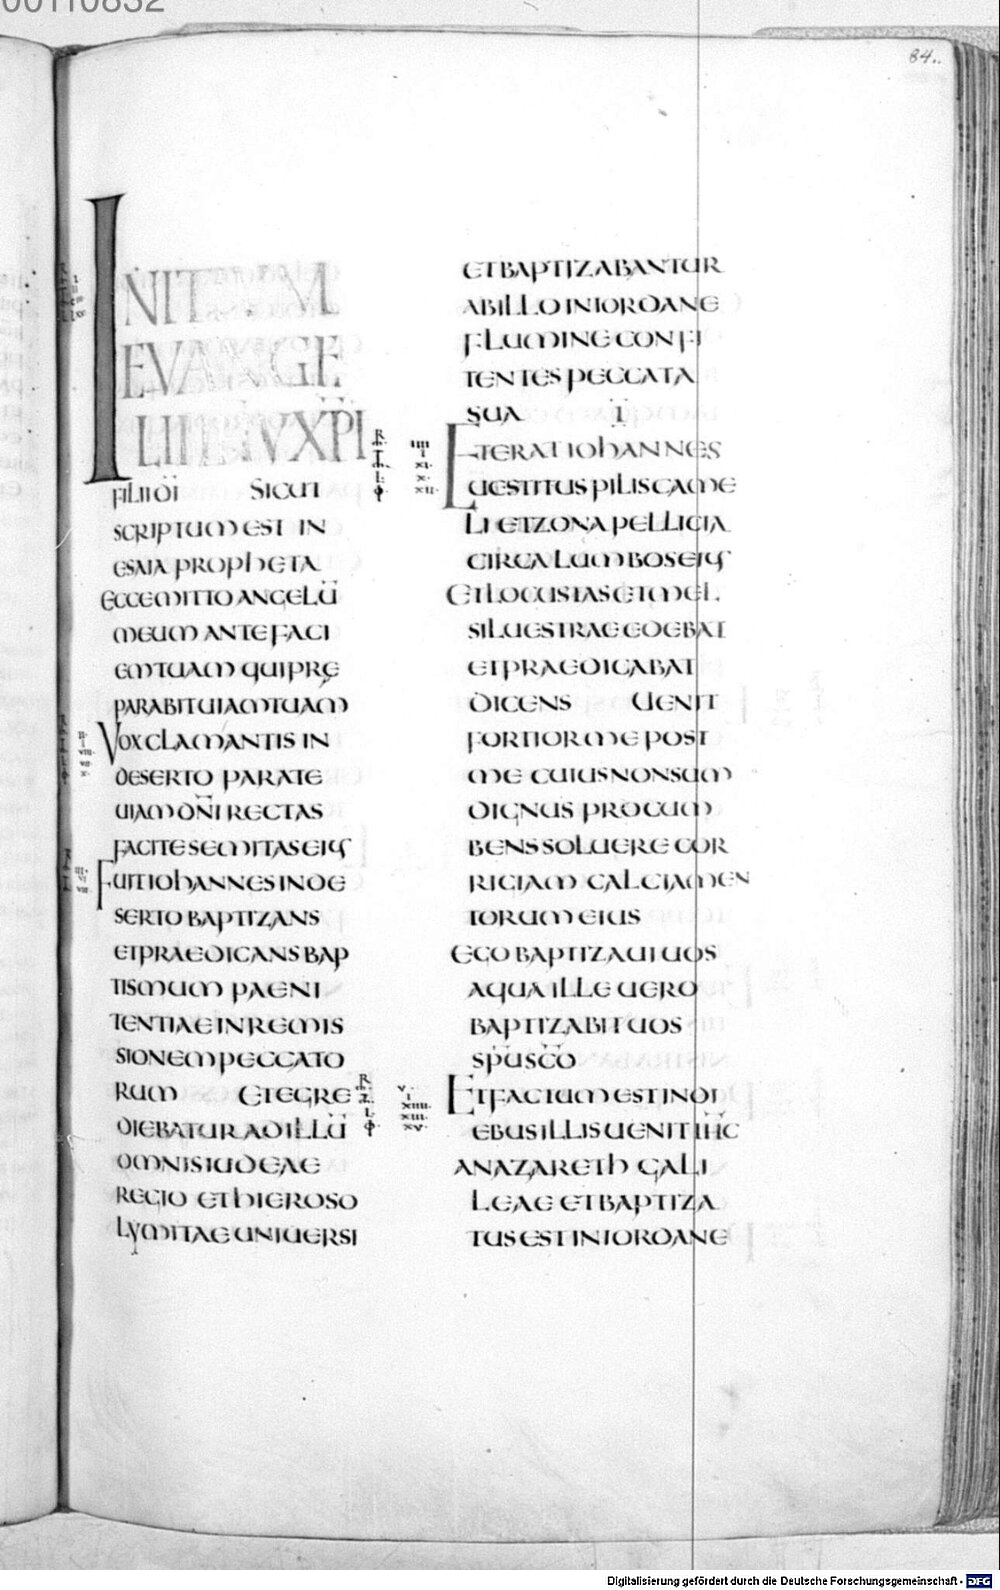 00110832
84..
INITIUM
EVANGE
LII IHV XPI
FILII DI SICUT
SCRIPTUM EST IN
ESAIA PROPHETA
ECCE MITTO ANGELŪ
MEUM ANTE FACI
EM TUAM QUI PRĘ
PARABIT UIAM TUAM
VOX CLAMANTIS IN
DESERTO PARATE
UIAM DN̄I RECTAS
FACITE SEMITAS EIUS
FUIT IOHANNES IN DE
SERTO BAPTIZANS
ET PRAEDICANS BAP
TISMUM PAENI
TENTIAE IN REMIS
SIONEM PECCATO
RUM ET EGRE
DIEBATUR AD ILLŪ
OMNIS IUDEAE
REGIO ET HIEROSO
LYMITAE UNIUERSI
ET BAPTIZABANTUR
AB ILLO IN IORDANE
FLUMINE CONFI
TENTES PECCATA
SUA
ET ERAT IOHANNES
UESTITUS PILIS CAME
LI ET ZONA PELLICIA
CIRCA LUMBOS EIUS
ET LOCUSTAS ET MEL
SILUESTRAE EDEBAT
ET PRAEDICABAT
DICENS UENIT
FORTIOR ME POST
ME CUIUS NON SUM
DIGNUS PROCUM
BENS SOLUERE COR
RIGIAM CALCIAMEN
TORUM EIUS
EGO BAPTIZAUI UOS
AQUA ILLE UERO
BAPTIZABIT UOS
SPŪ SCŌ
ET FACTUM EST IN DI
EBUS ILLIS UENIT IHC
A NAZARETH GALI
LEAE ET BAPTIZA
TUS EST IN IORDANE
Digitalisierung gefördert durch die Deutsche Forschungsgemeinschaft - DFG